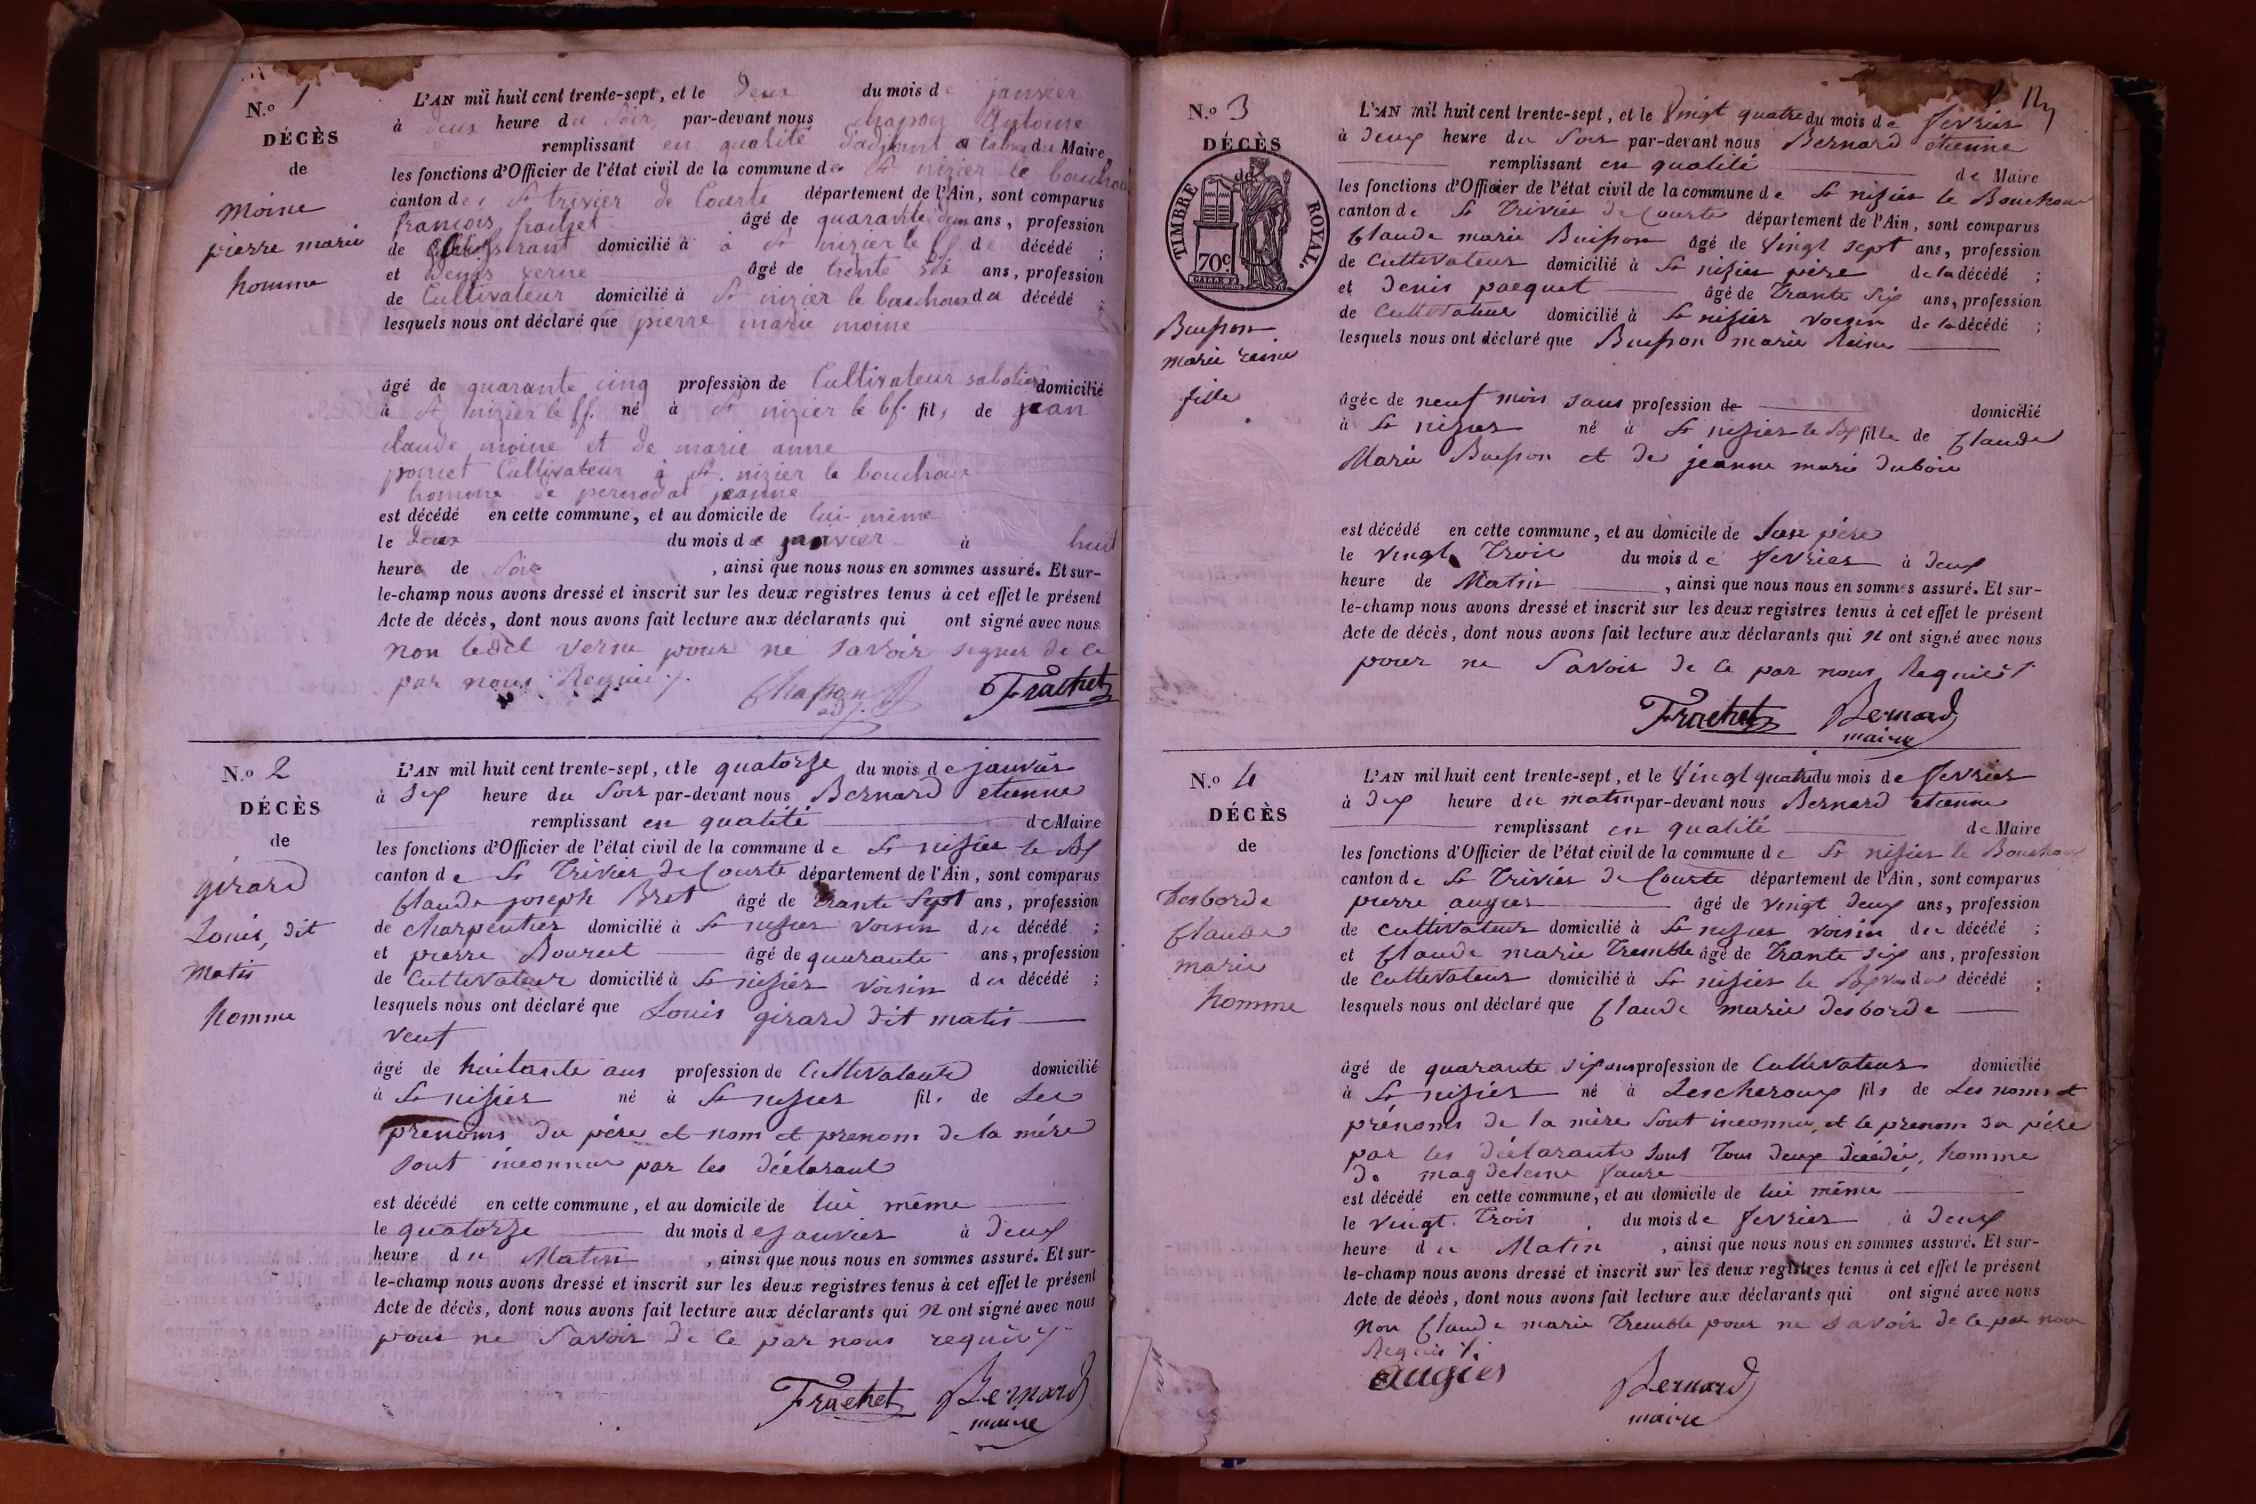 N.o 1
DÉCÈS
de
Moine
pierre marie
homme
L'AN mil huit cent trente-sept, et le deux du mois de janvier
à deux heure du soir par-devant nous chapon Antoine
remplissant en qualité d'adjoint du Maire
les fonctions d'Officier de l'état civil de la commune de St nizier le bouchoux
canton de St trivier de Courte département de l'Ain, sont comparus
françois frachet âgé de quarante deux ans, profession
de domicilié à St nizier le bf. de décédé ;
et Denys verne âgé de trente six ans, profession
de Cultivateur domicilié à St nizier le bouchoux du décédé ;
lesquels nous ont déclaré que pierre marie moine
âgé de quarante cinq profession de Cultivateur sabotier domicilié
à St nizier le bf. né à St nizier le bf. fils de jean
claude moine et de marie anne
poncet Cultivateur à St. nizier le bouchoux
homme de pernodat jeanne
est décédé en cette commune, et au domicile de lui même
le deux du mois de janvier à huit
heure de Soir , ainsi que nous nous en sommes assuré. Et sur-
le-champ nous avons dressé et inscrit sur les deux registres tenus à cet effet le présent
Acte de décès, dont nous avons fait lecture aux déclarants qui ont signé avec nous
non ledit verne pour ne savoir signer de ce
par nous Requis /.
Chapon adj. Frachet
N.o 2
DÉCÈS
de
girard
Louis, dit
matis
homme
L'AN mil huit cent trente-sept, et le quatorze du mois de janvier
à six heure du soir par-devant nous Bernard etienne
remplissant en qualité de Maire
les fonctions d'Officier de l'état civil de la commune de St nisier le Bx
canton de St Trivier de Courte département de l'Ain, sont comparus
Claude joseph Bret âgé de trante sept ans, profession
de charpentier domicilié à St nisier voisin du décédé ;
et pierre Bourcet âgé de quarante ans, profession
de Cultivateur domicilié à St nisier voisin du décédé ;
lesquels nous ont déclaré que Louis girard dit matis
veuf
âgé de huitante ans profession de Cultivateur domicilié
à St nisier né à St nisier fils de Les
prenoms du père et nom et prenom de la mère
sont inconnus par les déclarants
est décédé en cette commune, et au domicile de lui même
le quatorze du mois de janvier à deux
heure du Matin , ainsi que nous nous en sommes assuré. Et sur-
le-champ nous avons dressé et inscrit sur les deux registres tenus à cet effet le présent
Acte de décès, dont nous avons fait lecture aux déclarants qui n ont signé avec nous
pour ne savoir de ce par nous requis /.
Frachet Bernard
maire
N.o 3
DÉCÈS
de
TIMBRE ROYAL.
70c
Buisson
marie reine
fille
L'AN mil huit cent trente-sept, et le vingt quatre du mois de fevrier
à deux heure du soir par-devant nous Bernard étienne
remplissant en qualité de Maire
les fonctions d'Officier de l'état civil de la commune de St nisier le Bouchoux
canton de St Trivier de Courte département de l'Ain, sont comparus
Claude marie Buisson âgé de vingt sept ans, profession
de Cultivateur domicilié à St nisier père de la décédé ;
et Denis pacquet âgé de trante six ans, profession
de Cultivateur domicilié à St nisier voisin de la décédé ;
lesquels nous ont déclaré que Buisson marie Reine
âgée de neuf mois sans profession de domicilié
à St nisier né à St nisier le Bx fille de Claude
Marie Buisson et de jeanne marie duboie
est décédé en cette commune, et au domicile de son père
le vingt trois du mois de fevrier à deux
heure de Matin , ainsi que nous nous en sommes assuré. Et sur-
le-champ nous avons dressé et inscrit sur les deux registres tenus à cet effet le présent
Acte de décès, dont nous avons fait lecture aux déclarants qui n ont signé avec nous
pour ne savoir de ce par nous Requis /.
Frachet Bernard
maire
N.o 4
DÉCÈS
de
Desborde
Claude
marie
homme
L'AN mil huit cent trente-sept, et le vingt quatre du mois de fevrier
à dix heure du matin par-devant nous Bernard etienne
remplissant en qualité de Maire
les fonctions d'Officier de l'état civil de la commune de St nisier le Bouchoux
canton de St Trivier de Courte département de l'Ain, sont comparus
pierre augier âgé de vingt deux ans, profession
de cultivateur domicilié à St nisier voisin du décédé ;
et Claude marie Tremble âgé de trante six ans, profession
de Cultivateur domicilié à St nisier le Bx du décédé ;
lesquels nous ont déclaré que Claude marie desborde
âgé de quarante six ans profession de Cultivateur domicilié
à St nisier né à Lescheroux fils de Les noms et
prénoms de la mère sont inconnu, et le prenom du père
par les déclarants sont tous deux décédé, homme
de magdeleine faure
est décédé en cette commune, et au domicile de lui même
le vingt trois du mois de fevrier à deux
heure du Matin , ainsi que nous nous en sommes assuré. Et sur-
le-champ nous avons dressé et inscrit sur les deux registres tenus à cet effet le présent
Acte de décès, dont nous avons fait lecture aux déclarants qui ont signé avec nous
non Claude marie Tremble pour ne savoir de ce par nous
Requis /.
augier Bernard
maire